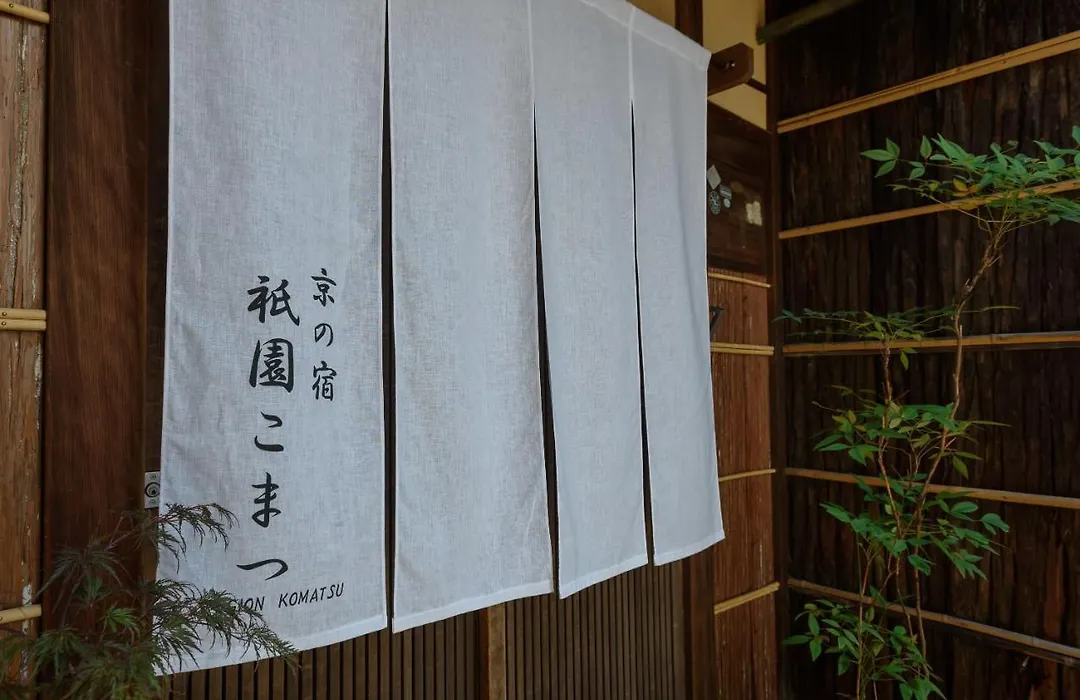 京の宿
祇園こまつ
KOMATSU